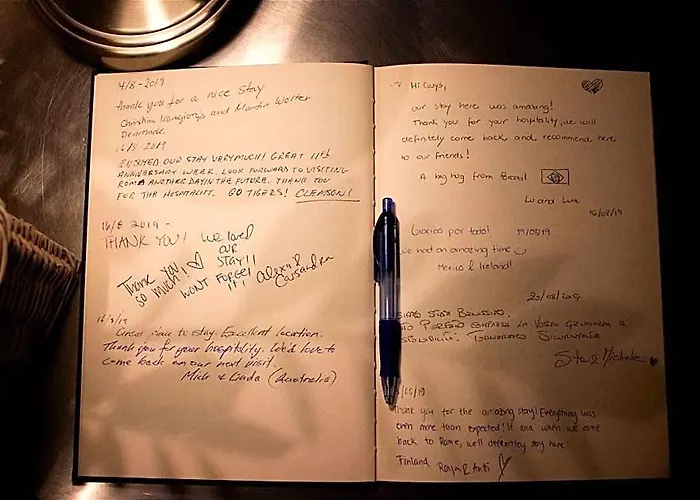 14/8-2019
Thank you for a nice stay
Christian and Martin Wolter
Denmark
16/8 2019
ENJOYED OUR STAY VERY MUCH! GREAT 11th
ANNIVERSARY WEEK. LOOK FORWARD TO VISITING
ROME ANOTHER DAY IN THE FUTURE. THANK YOU
FOR THE HOSPITALITY. GO TIGERS! CLEMSON!
16/8 2019 -
THANK YOU! We loved
OUR
STAY!!
Thank You
so much!
WONT FORGET
IT!
Alexis &
Cassandra
Great place to stay. Excellent location.
Thank you for your hospitality. We'd love to
come back on our next visit.
Mick & Linda (Australia)
Hi Guys,
our stay here was amazing!
Thank you for your hospitality, we will
definitely come back and recommend here
to our friends!
A big hug from Brazil
Lu and
16/08/19
Gracias por todo! 19/08/19
we had an amazing time
Mexico & Ireland!
23/08/2019
SIAMO STATI BENISSIMO.
PERFETTO COMPRESA LA VOSTRA GENTILEZZA E
DISPONIBILITÀ. TORNEREMO SICURAMENTE
& Michele
/19
Thank you for the amazing stay! Everything was
even more than expected! If and when we come
back to Rome, we'll definitely stay here
Finland